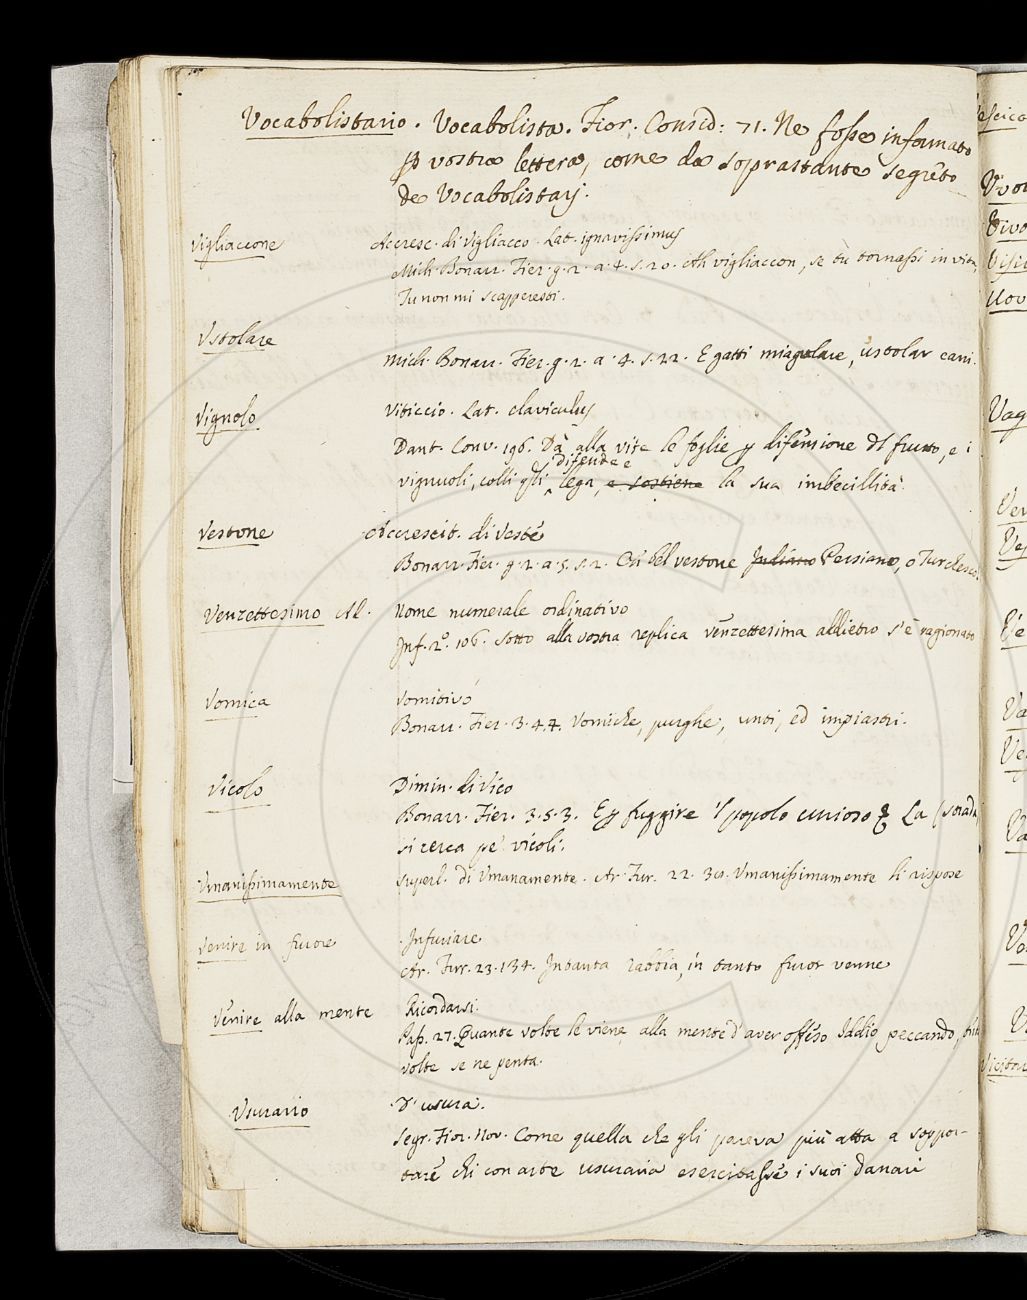 Vocabolistario. Vocabolista. Fior. Consid: 71. Ne fosse informato
p vostra lettera, come da soprastante segreto
de Vocabolistarj.
Vigliaccone Accresc. di Vigliacco. Lat. ignavissimus
Mich. Bonarr. Fier. g. 2. a. 4. s. 20. Ah vigliaccon, se tu tornassi in vita,
Tu non mi scapperesti.
Ustolare
Mich. Bonarr. Fier. g. 2. a. 4. s. 22. E gatti miagolare, ustolar cani.
Vignolo Viticcio. Lat. claviculus
Dant. Conv. 196. Dà alla vite le foglie p difensione del frutto, e i
difende e
vignuoli, colli qsli lega, e sostiene la sua imbecillità.
Vestone Accrescit. di Veste
Bonarr. Fier. g. 2. a. 5. s. 2. Un bel vestone Indiano Persiano, o Turchesco.
Venzettesimo Al. Nome numerale ordinativo
Inf. 2.º 106. Sotto alla vostra replica venzettesima addietro s'è ragionato
Vomica Vomitivo
Bonarr. Fier. 3. 4. 4. Vomiche, purghe, unti, ed impiastri.
Vicolo Dimin. di Vico
Bonarr. Fier. 3. 5. 3. E p fuggire 'l popolo curioso & La strada
si cerca pe' vicoli.
Umanissimamente Superl. di Umanamente. Ar. Fur. 22. 30. Umanissimamente li rispose
Venire in furore Infuriare
Ar. Fur. 23. 134. In tanta rabbia, in tanto furor venne
Venire alla mente Ricordarsi.
Pass. 27. Quante volte le viene alla mente d'aver offeso Iddio peccando,
volte se ne penta.
Usurario D'usura.
Segr. Fior. Nov. Come quella che gli pareva più atta a soppor-
tare chi con arte usuraria esercitasse i suoi danari